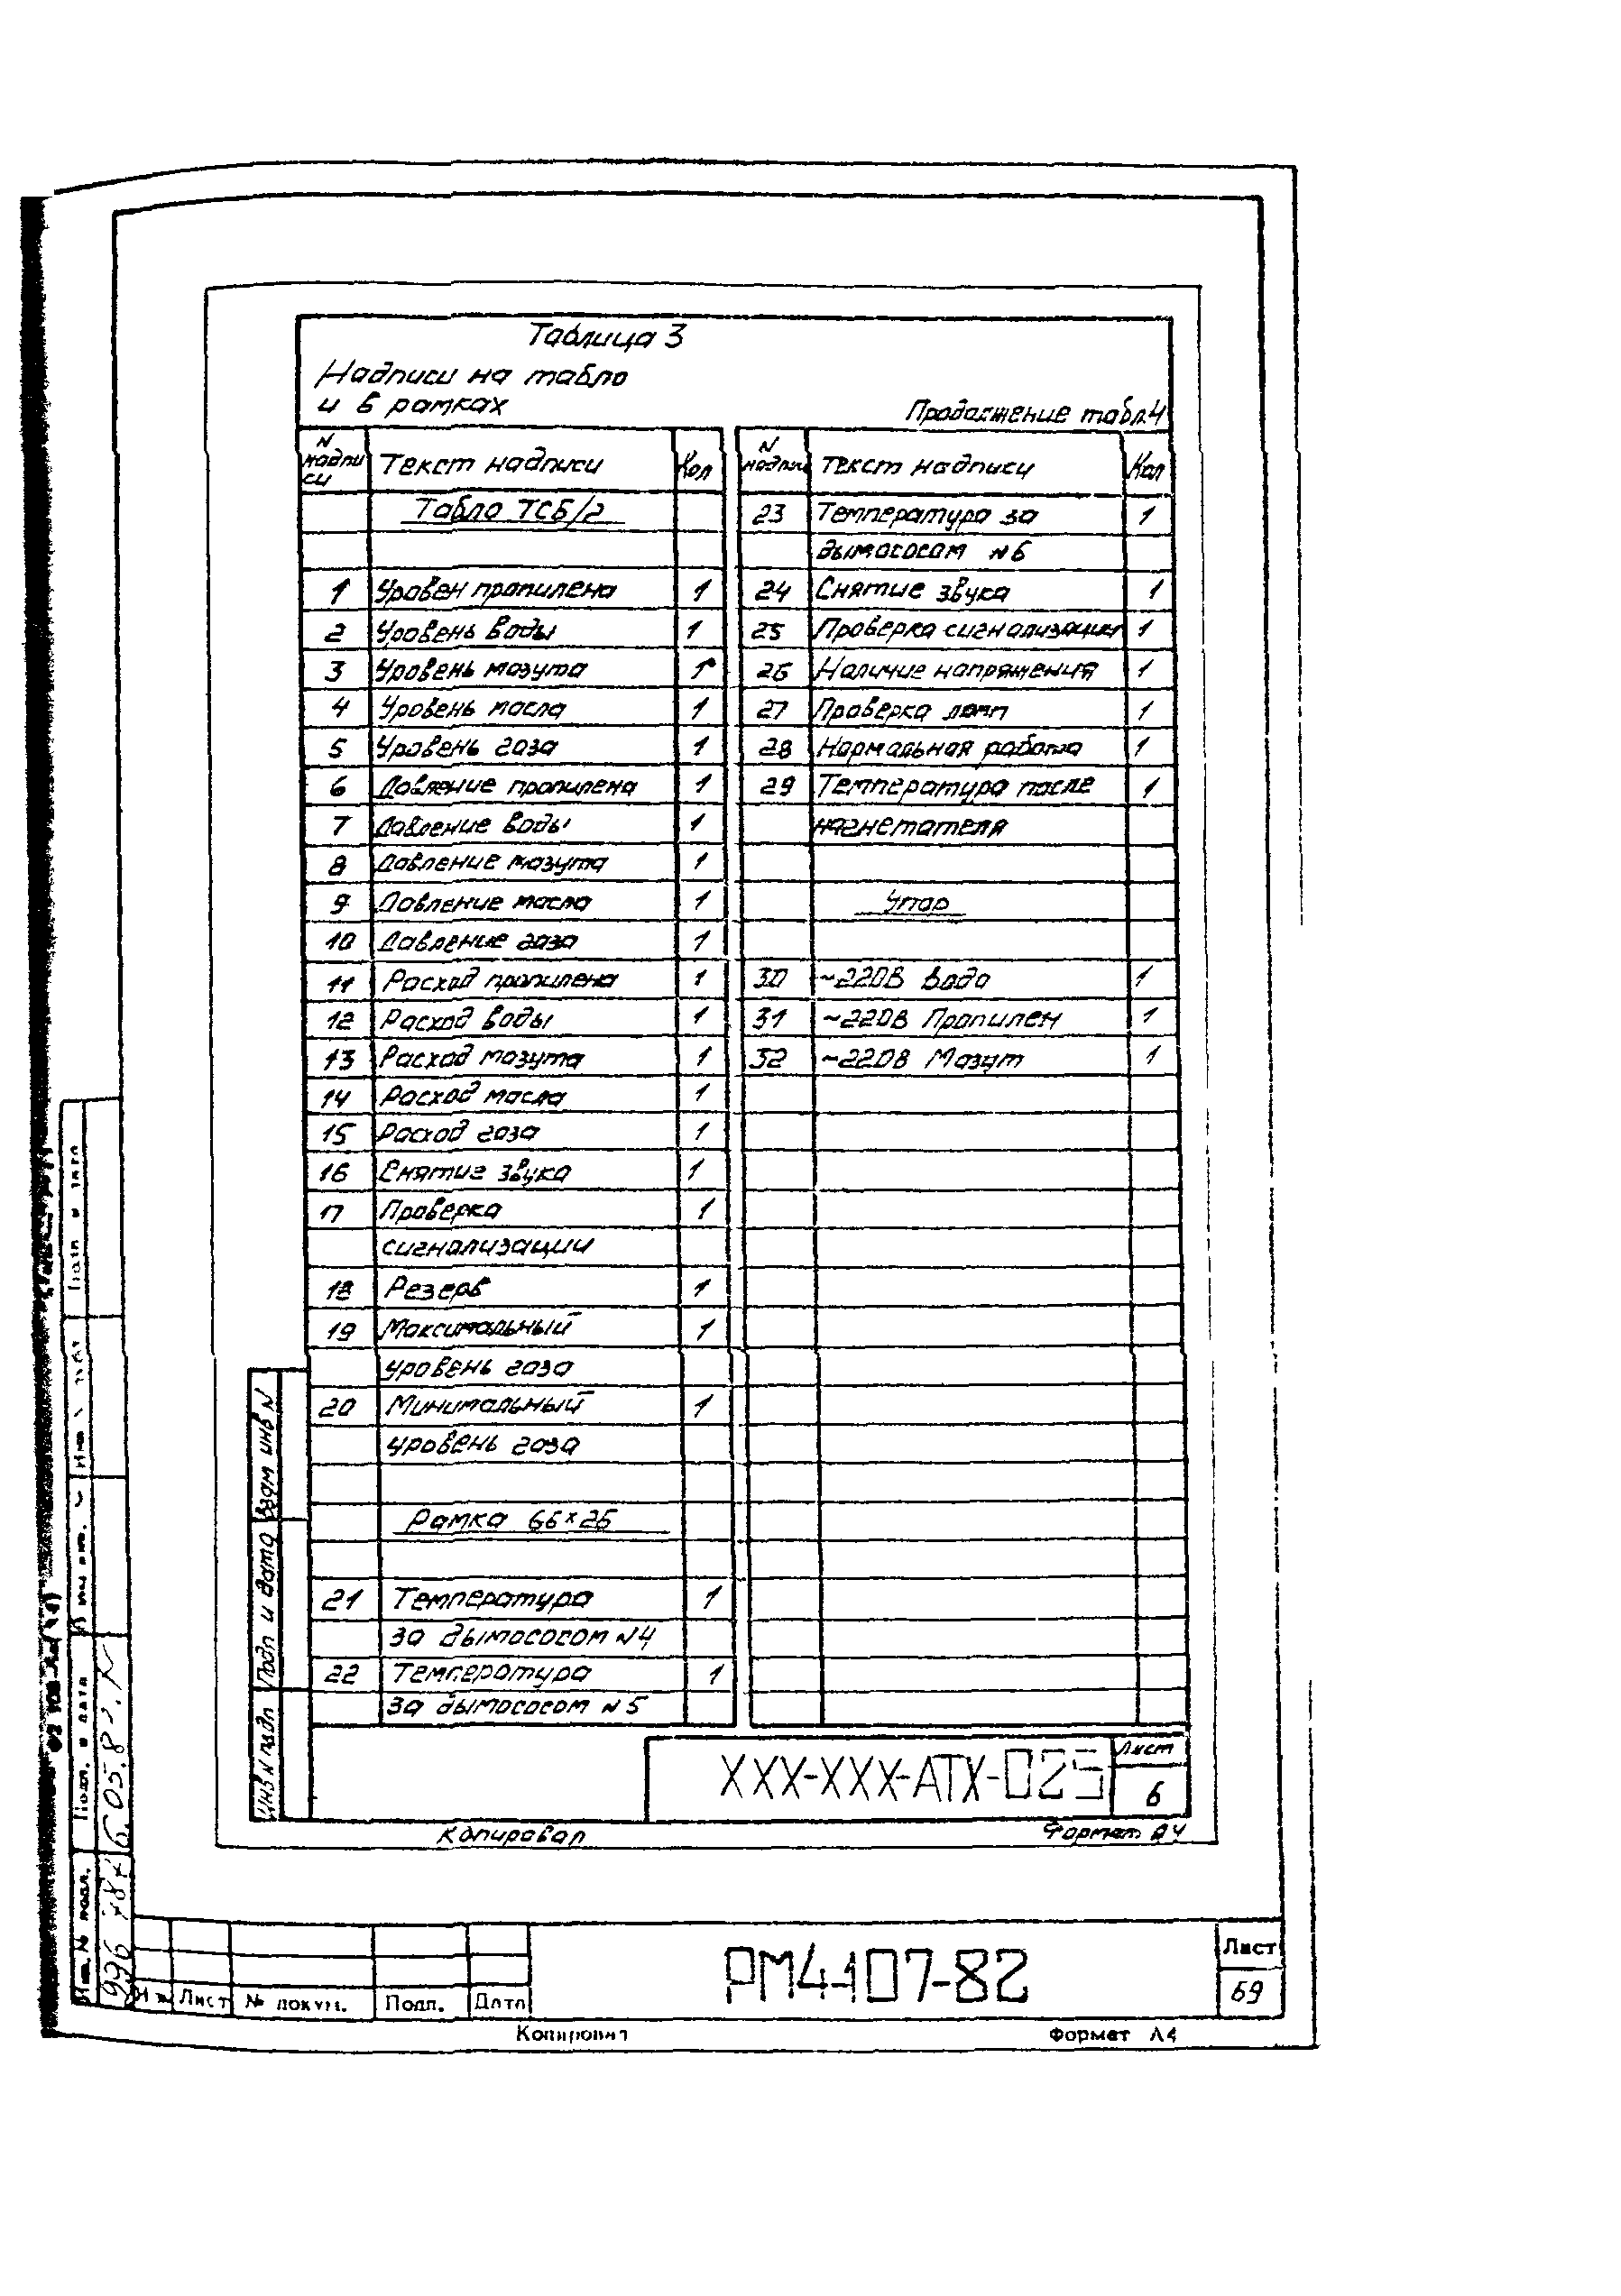 Таблица 3
Надписи на табло
и в рамках
Продолжение табл.4
N надписи Текст надписи Кол
Табло ТСБ/2
1 Уровен пропилена 1
2 Уровень воды 1
3 Уровень мазута 1
4 Уровень масла 1
5 Уровень газа 1
6 Давление пропилена 1
7 Давление воды 1
8 Давление мазута 1
9 Давление масла 1
10 Давление газа 1
11 Расход пропилена 1
12 Расход воды 1
13 Расход мазута 1
14 Расход масла 1
15 Расход газа 1
16 Снятие звука 1
17 Проверка 1
сигнализации
18 Резерв 1
19 Максимальный 1
уровень газа
20 Минимальный 1
уровень газа
Рамка 66×26
21 Температура 1
за дымососом N4
22 Температура 1
за дымососом N5
N надписи Текст надписи Кол
23 Температура за 1
дымососом N6
24 Снятие звука 1
25 Проверка сигнализации 1
26 Наличие напряжения 1
27 Проверка ламп 1
28 Нормальная работа 1
29 Температура после 1
нагнетателя
Упор
30 ~220В Вода 1
31 ~220В Пропилен 1
32 ~220В Мазут 1
Взам инв N
Подп и дата
Инв N подл
XXX-XXX-АТХ-025
Лист
6
Копировал
Формат А4
Подп. и дата
Инв. № подл.
РМ4-107-82
Лист
69
Лист № докум. Подп. Дата
Копировал
Формат А4